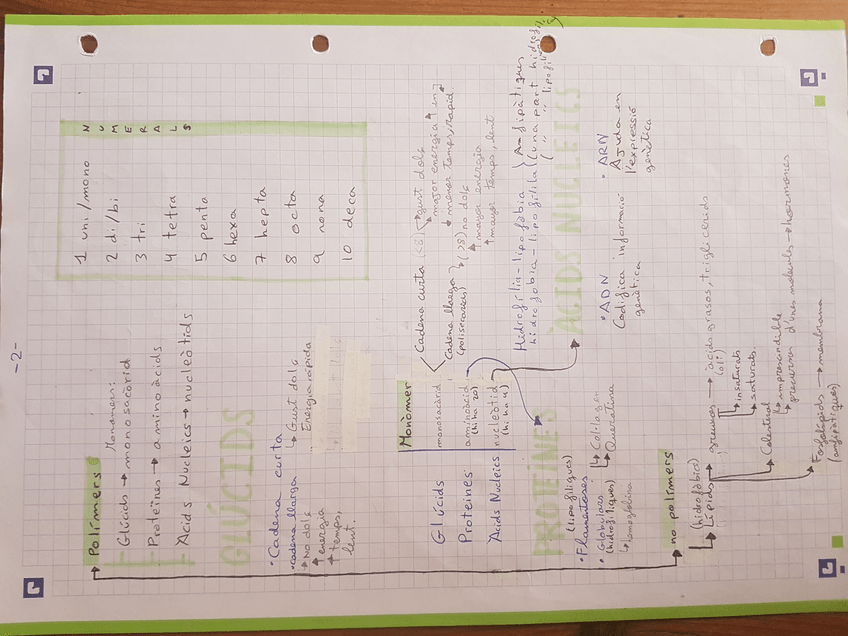 -2-
Polímers
Monomeri:
Glúcids → monosacàrid
Proteïnes → aminoàcids
Àcids Nucleics → nucleòtids
NUMERALS
1 uni/mono
2 di/bi
3 tri
4 tetra
5 penta
6 hexa
7 hepta
8 octa
9 nona
10 deca
GLÚCIDS
• Cadena curta
↳ Gust dolç
Energia ràpida
• cadena llarga
→ No dolç
↑ energia
↑ temps,
lent.
Monòmer
Glúcids monosacàrid
Proteïnes aminoàcid
(hi ha 20)
Àcids Nucleics nucleòtid
(hi ha 4)
Cadena curta (<8) gust dolç
major energia
menor temps, ràpid.
Cadena llarga (>8) no dolç
(polisacàrids)
mayor energia
mayor temps, lent
Hidrofília-lipofòbia
hidrofobia-lipofília
Amfipàtiques
(una part hidrofí
" " lipofíl
PROTEÏNES
(lipofíliques)
• Filamentoses
↳ Col·lagen
↳ Queratina
• Globulars
(hidrofíliques)
↳ hemoglobina
ÀCIDS NUCLEICS
• ADN
Codifica informació
genètica
• ARN
Ajuda en
l'expressió
genètica
no polímers
(hidrofòbics)
↳ Lípids
→ greixos → àcids grasos, triglicèrids
(oli)
↳ insaturats
↳ saturats.
→ Colesterol
↳ imprescindible
↳ precursor d'unes molècules → hormones
→ Fosfolípids → membrana
(amfipàtiques)